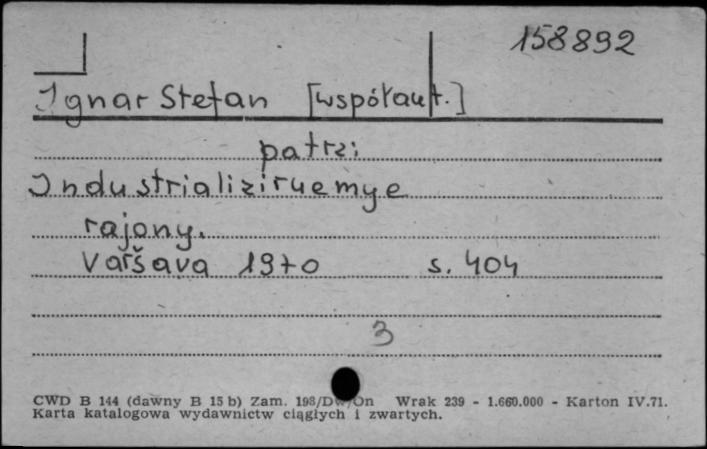 158892
Ignar Stefan [współaut.]
patrz:
Industrializiruemye
rajony.
Varšava 1970 s. 404
3
CWD B 144 (dawny B 15 b) Zam. 198/Dw/On Wrak 239 - 1.660.000 - Karton IV.71.
Karta katalogowa wydawnictw ciągłych i zwartych.